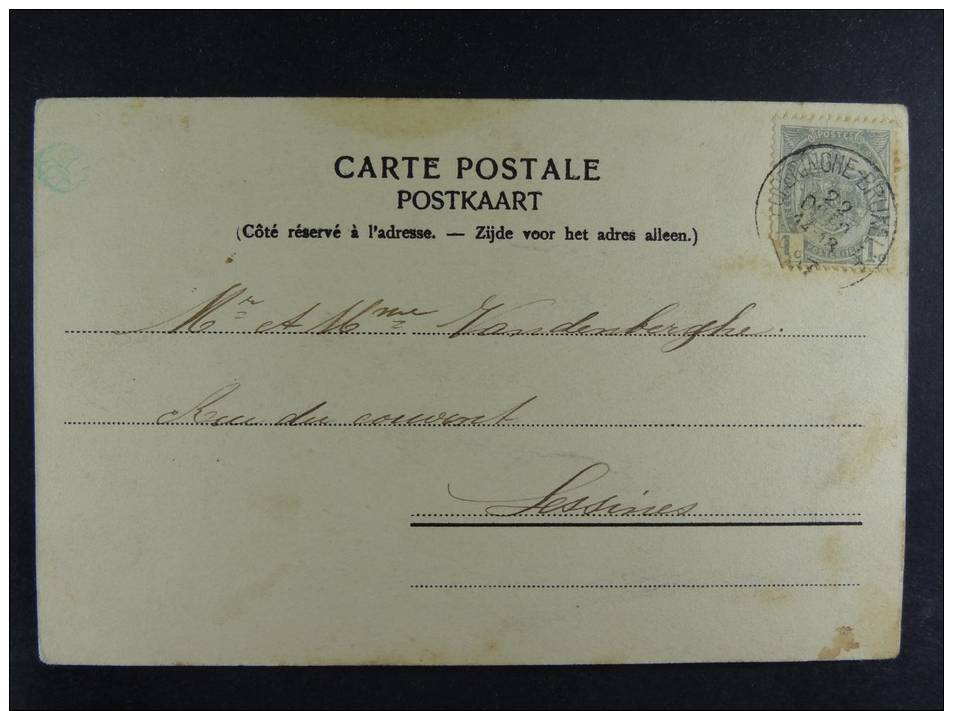 POSTES
22
1 1
CARTE POSTALE
POSTKAART
(Côté réservé à l'adresse. — Zijde voor het adres alleen.)
Mr et Mme Vandenberghe.
Rue du couvent
Lessines